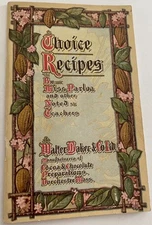 Choice
Recipes
By
Miss Parloa
and other
Noted
Teachers
Walter Baker & Co. Ltd.
Manufacturers of
Cocoa & Chocolate
Preparations,
Dorchester, Mass.